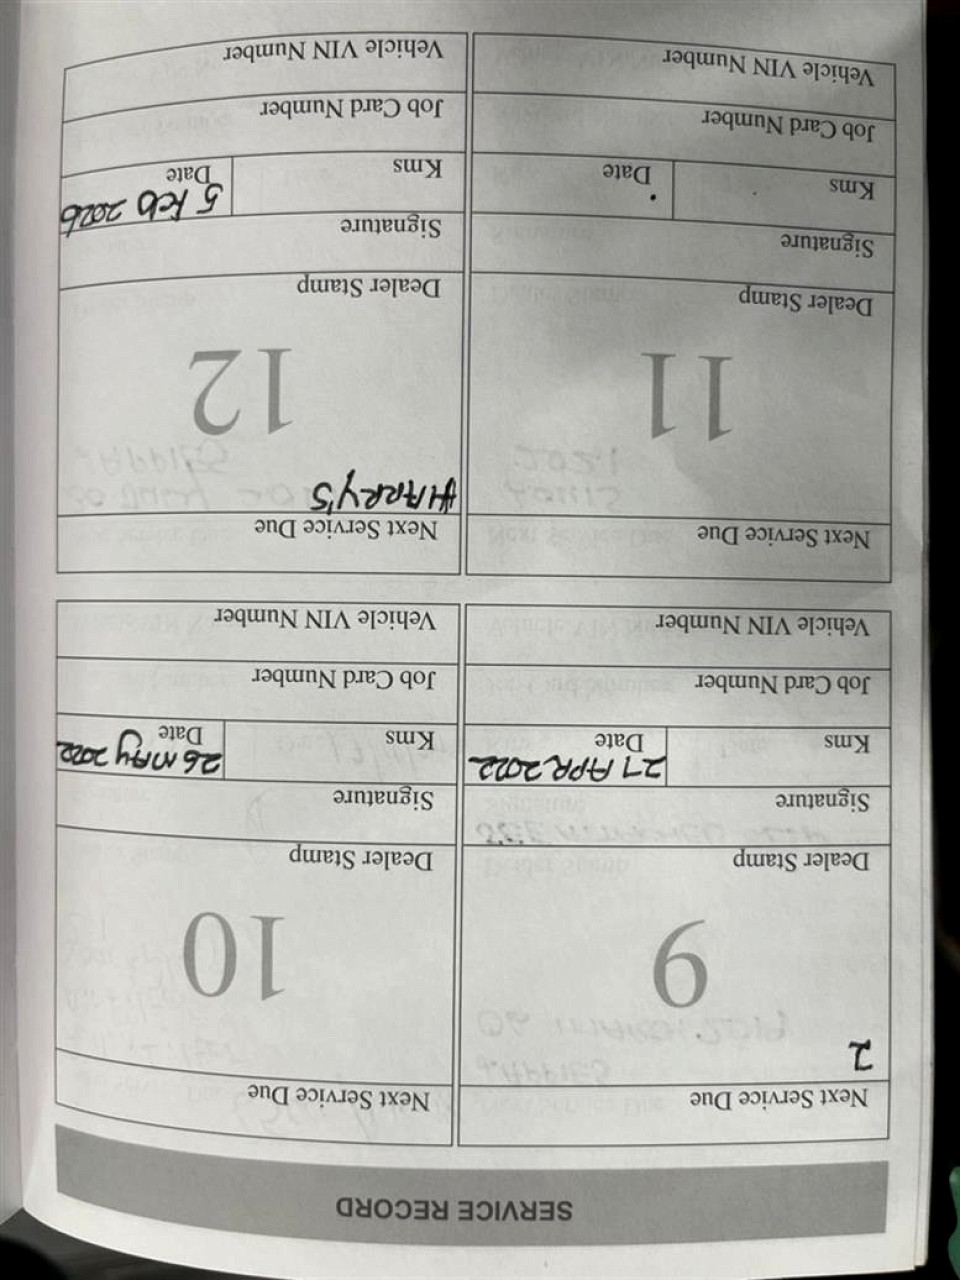 SERVICE RECORD
Next Service Due
2
9
Dealer Stamp
Signature
Kms
Date
27 APR 2022
Job Card Number
Vehicle VIN Number
Next Service Due
10
Dealer Stamp
Signature
Kms
Date
26 MAY 2022
Job Card Number
Vehicle VIN Number
Next Service Due
11
Dealer Stamp
Signature
Kms
Date
Job Card Number
Vehicle VIN Number
Next Service Due
HARRY'S
12
Dealer Stamp
Signature
Kms
5 Feb 2026
Date
Job Card Number
Vehicle VIN Number